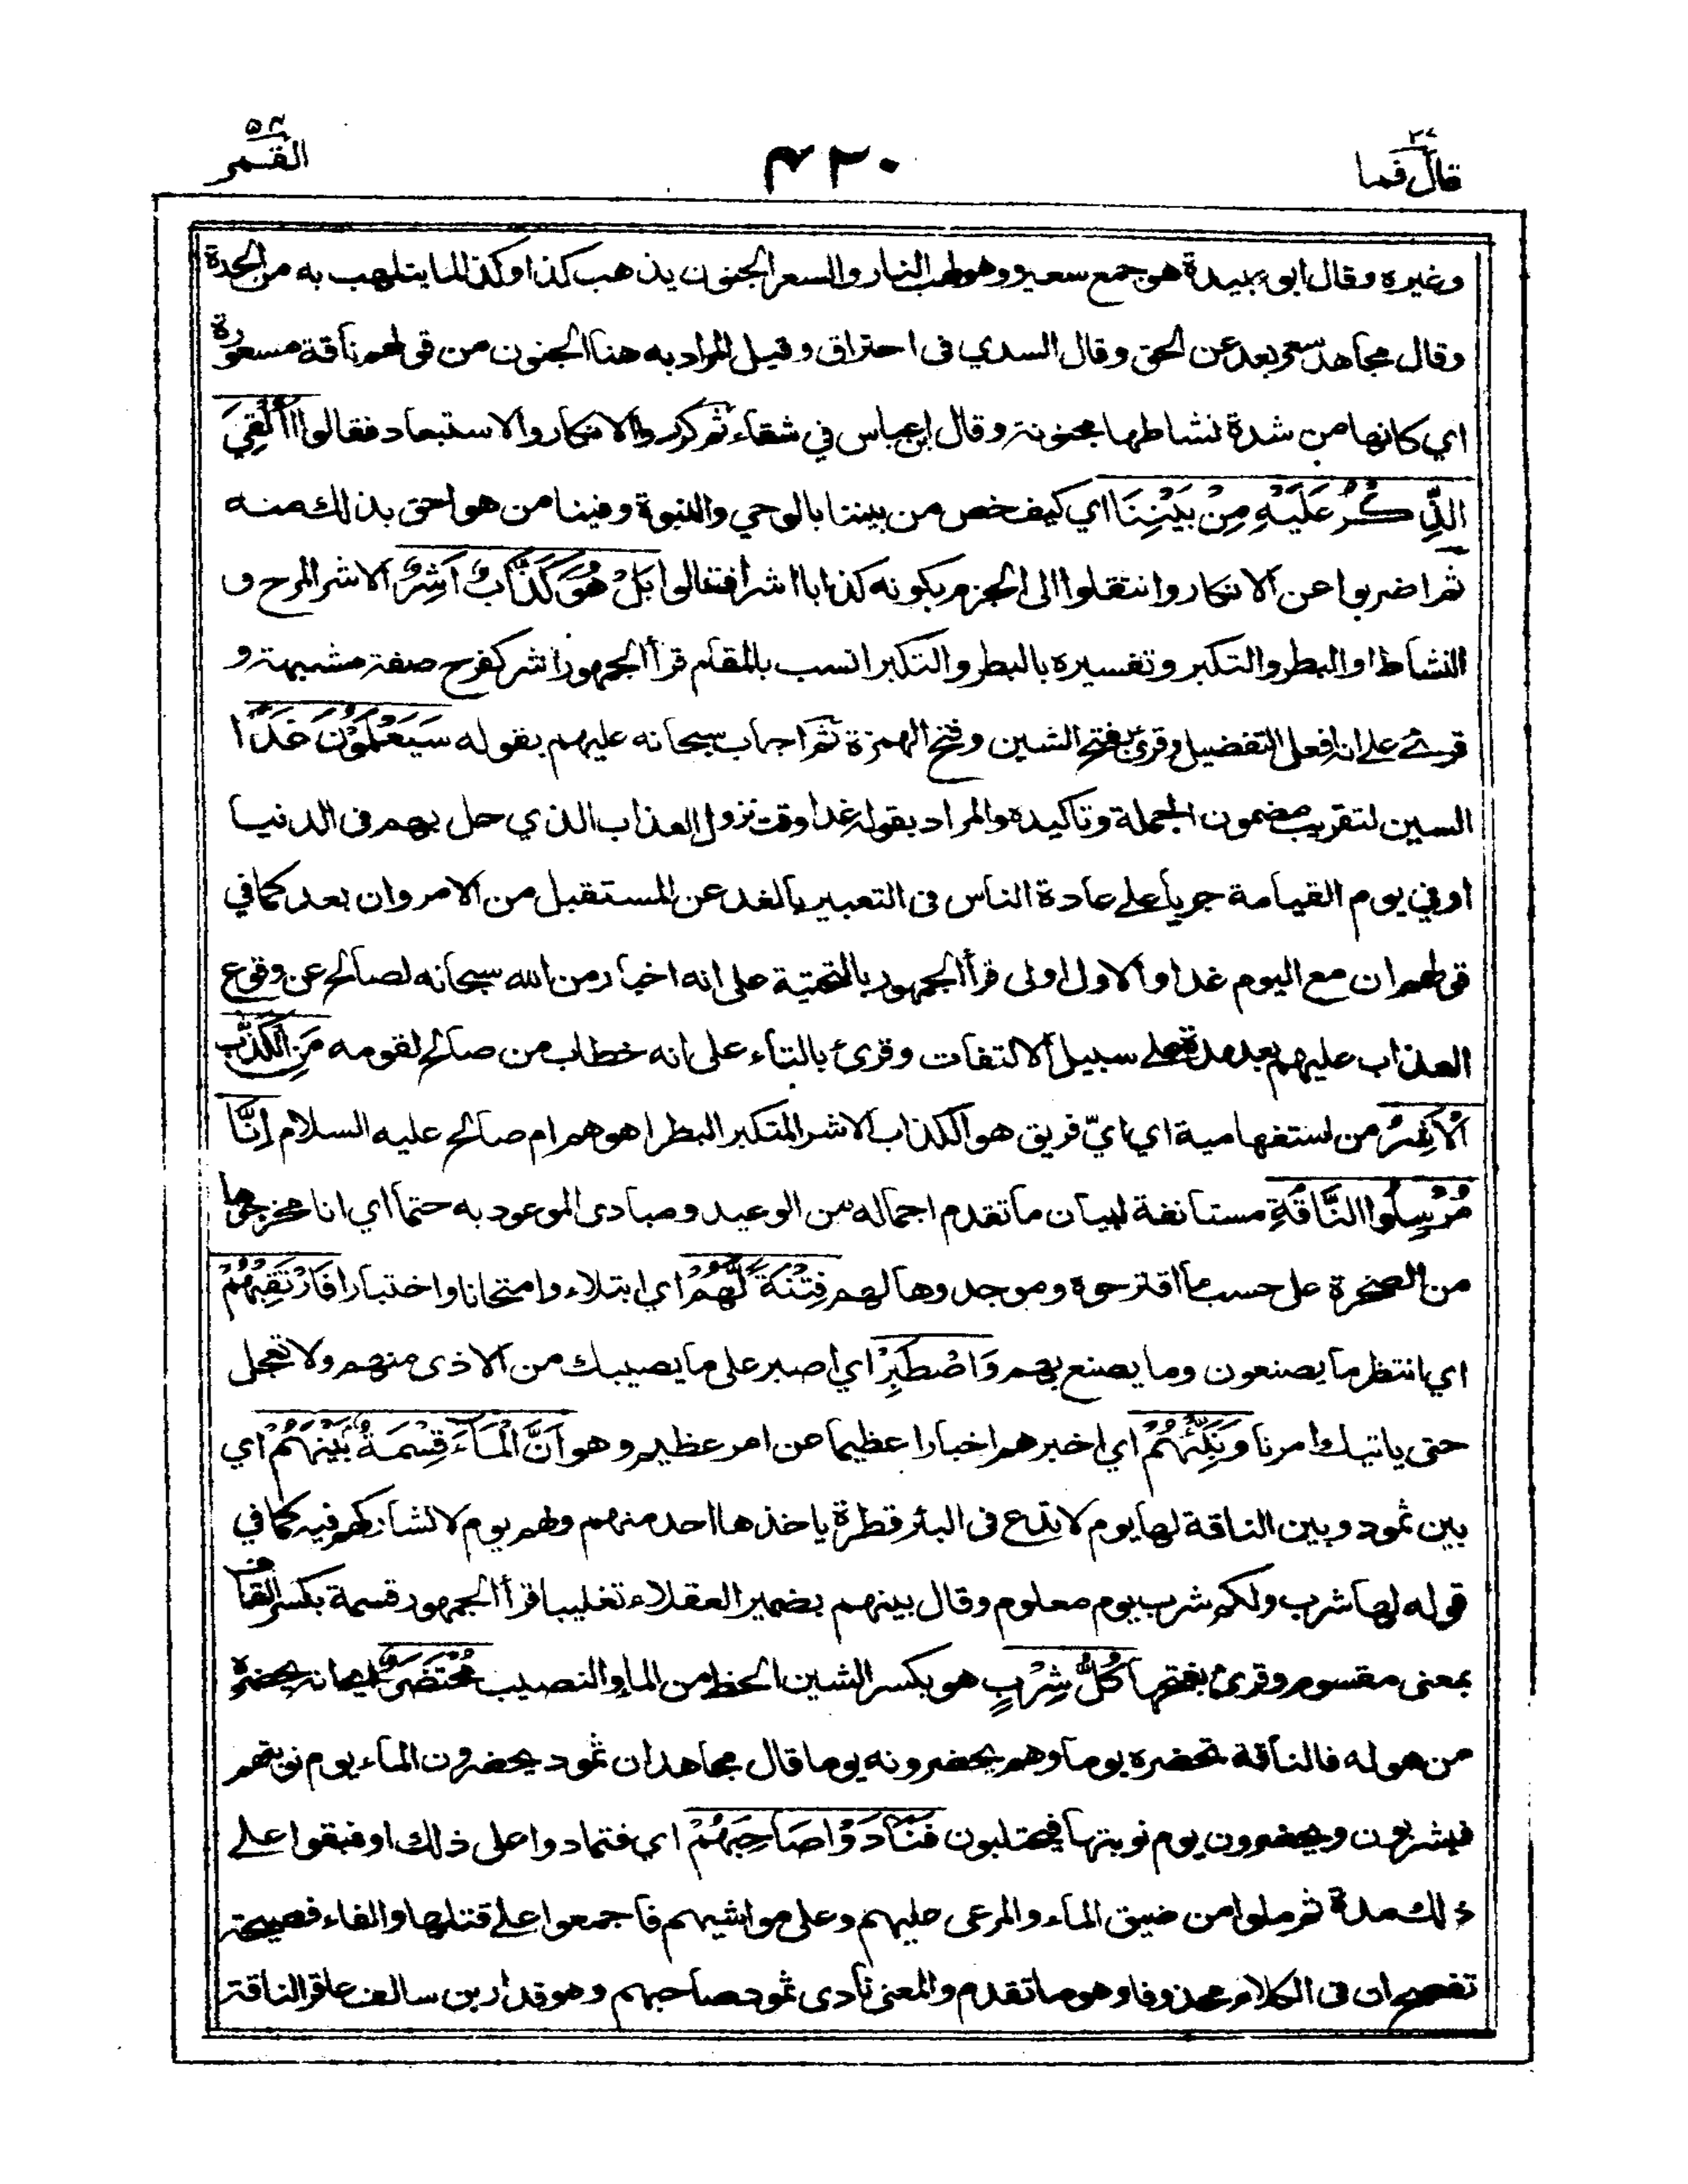 قال فما ٢٧
٤٢٠
القمر ٥٤
وغيره وقال ابو عبيدة هو جمع سعير وهو لهب النار والسعر الجنون يذهب كذا وكذا لما يتلهب به من الحدة
وقال مجاهد سعر بعد عن الحق وقال السدي في احتراق وقيل المراد به هنا الجنون من قولهم ناقة مسعورة
اي كانها من شدة نشاطها مجنونة وقال ابن عباس في شقاء ثم كرروا الانكار والاستبعاد فقالوا أَأُلْقِيَ
الذِّكْرُ عَلَيْهِ مِنْ بَيْنِنَا اي كيف خص من بيننا بالوحي والنبوة وفينا من هو احق بذلك منه
ثم اضربوا عن الانكار وانتقلوا الى الجزم بكونه كذابا اشرا فقالوا بَلْ هُوَ كَذَّابٌ أَشِرٌ الاشر المرح و
النشاط او البطر والتكبر وتفسيره بالبطر والتكبر انسب بالمقام قرأ الجمهور اشر كفرح صفة مشبهة و
قرئ على انه افعل التفضيل وقرئ بفتح الشين وفتح الهمزة ثم اجاب سبحانه عليهم بقوله سَيَعْلَمُوْنَ غَدًا
السين لتقريب مضمون الجملة وتاكيده والمراد بقوله غدا وقت نزول العذاب الذي حل بهم في الدنيا
او في يوم القيامة جريا على عادة الناس في التعبير بالغد عن المستقبل من الامر وان بعد كما في
قولهم ان مع اليوم غدا والاول اولى قرأ الجمهور بالتحتية على انه اخبار من الله سبحانه لصالح عن وقوع
العذاب عليهم بعد مدة على سبيل الالتفات وقرئ بالتاء على انه خطاب من صالح لقومه مَنِ الْكَذَّابُ
الْأَشِرُ من استفهامية اي ايّ فريق هو الكذاب الاشر المتكبر البطر اهو هم ام صالح عليه السلام إِنَّا
مُرْسِلُوا النَّاقَةِ مستانفة لبيان ما تقدم اجماله من الوعيد ومبادى الموعود به حتما اي انا مخرجوها
من الصخرة على حسب ما اقترحوه وموجدوها لهم فِتْنَةً لَّهُمْ اي ابتلاء وامتحانا واختبارا فَارْتَقِبْهُمْ
اي انتظر ما يصنعون وما يصنع بهم وَاصْطَبِرْ اي اصبر على ما يصيبك من الاذى منهم ولا تعجل
حتى ياتيك امرنا وَنَبِّئْهُمْ اي اخبرهم اخبارا عظيما عن امر عظيم وهو أَنَّ الْمَاءَ قِسْمَةٌ بَيْنَهُمْ اي
بين ثمود وبين الناقة لها يوم لا تدع في البئر قطرة ياخذها احد منهم ولهم يوم لا تشاركهم فيه كما في
قوله لها شرب ولكم شرب يوم معلوم وقال بينهم بضمير العقلاء تغليبا قرأ الجمهور قسمة بكسر القاف
بمعنى مقسوم وقرئ بفتحها كُلُّ شِرْبٍ هو بكسر الشين الحظ من الماء والنصيب مُحْتَضَرٌ اي انه يحضره
من هو له فالناقة تحضره يوما وهم يحضرونه يوما قال مجاهد ان ثمود يحضرون الماء يوم نوبتهم
فيشربون ويحضرون يوم نوبتها فيحتلبون فَنَادَوْا صَاحِبَهُمْ اي فتمادوا على ذلك او فبقوا على
ذلك مدة ثم ملوا من ضيق الماء والمرعى عليهم وعلى مواشيهم فاجمعوا على قتلها والفاء فصيحة
تفصح ان في الكلام محذوفا وهو ما تقدم والمعنى نادى ثمود صاحبهم وهو قدار بن سالف عاقر الناقة